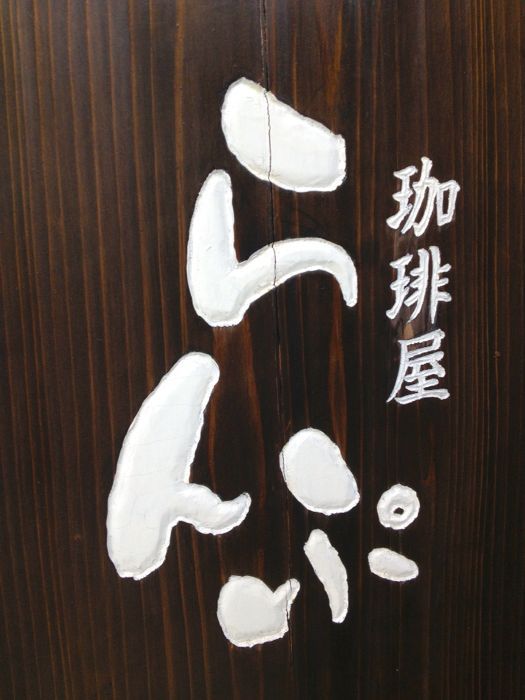 珈琲屋
らんぷ